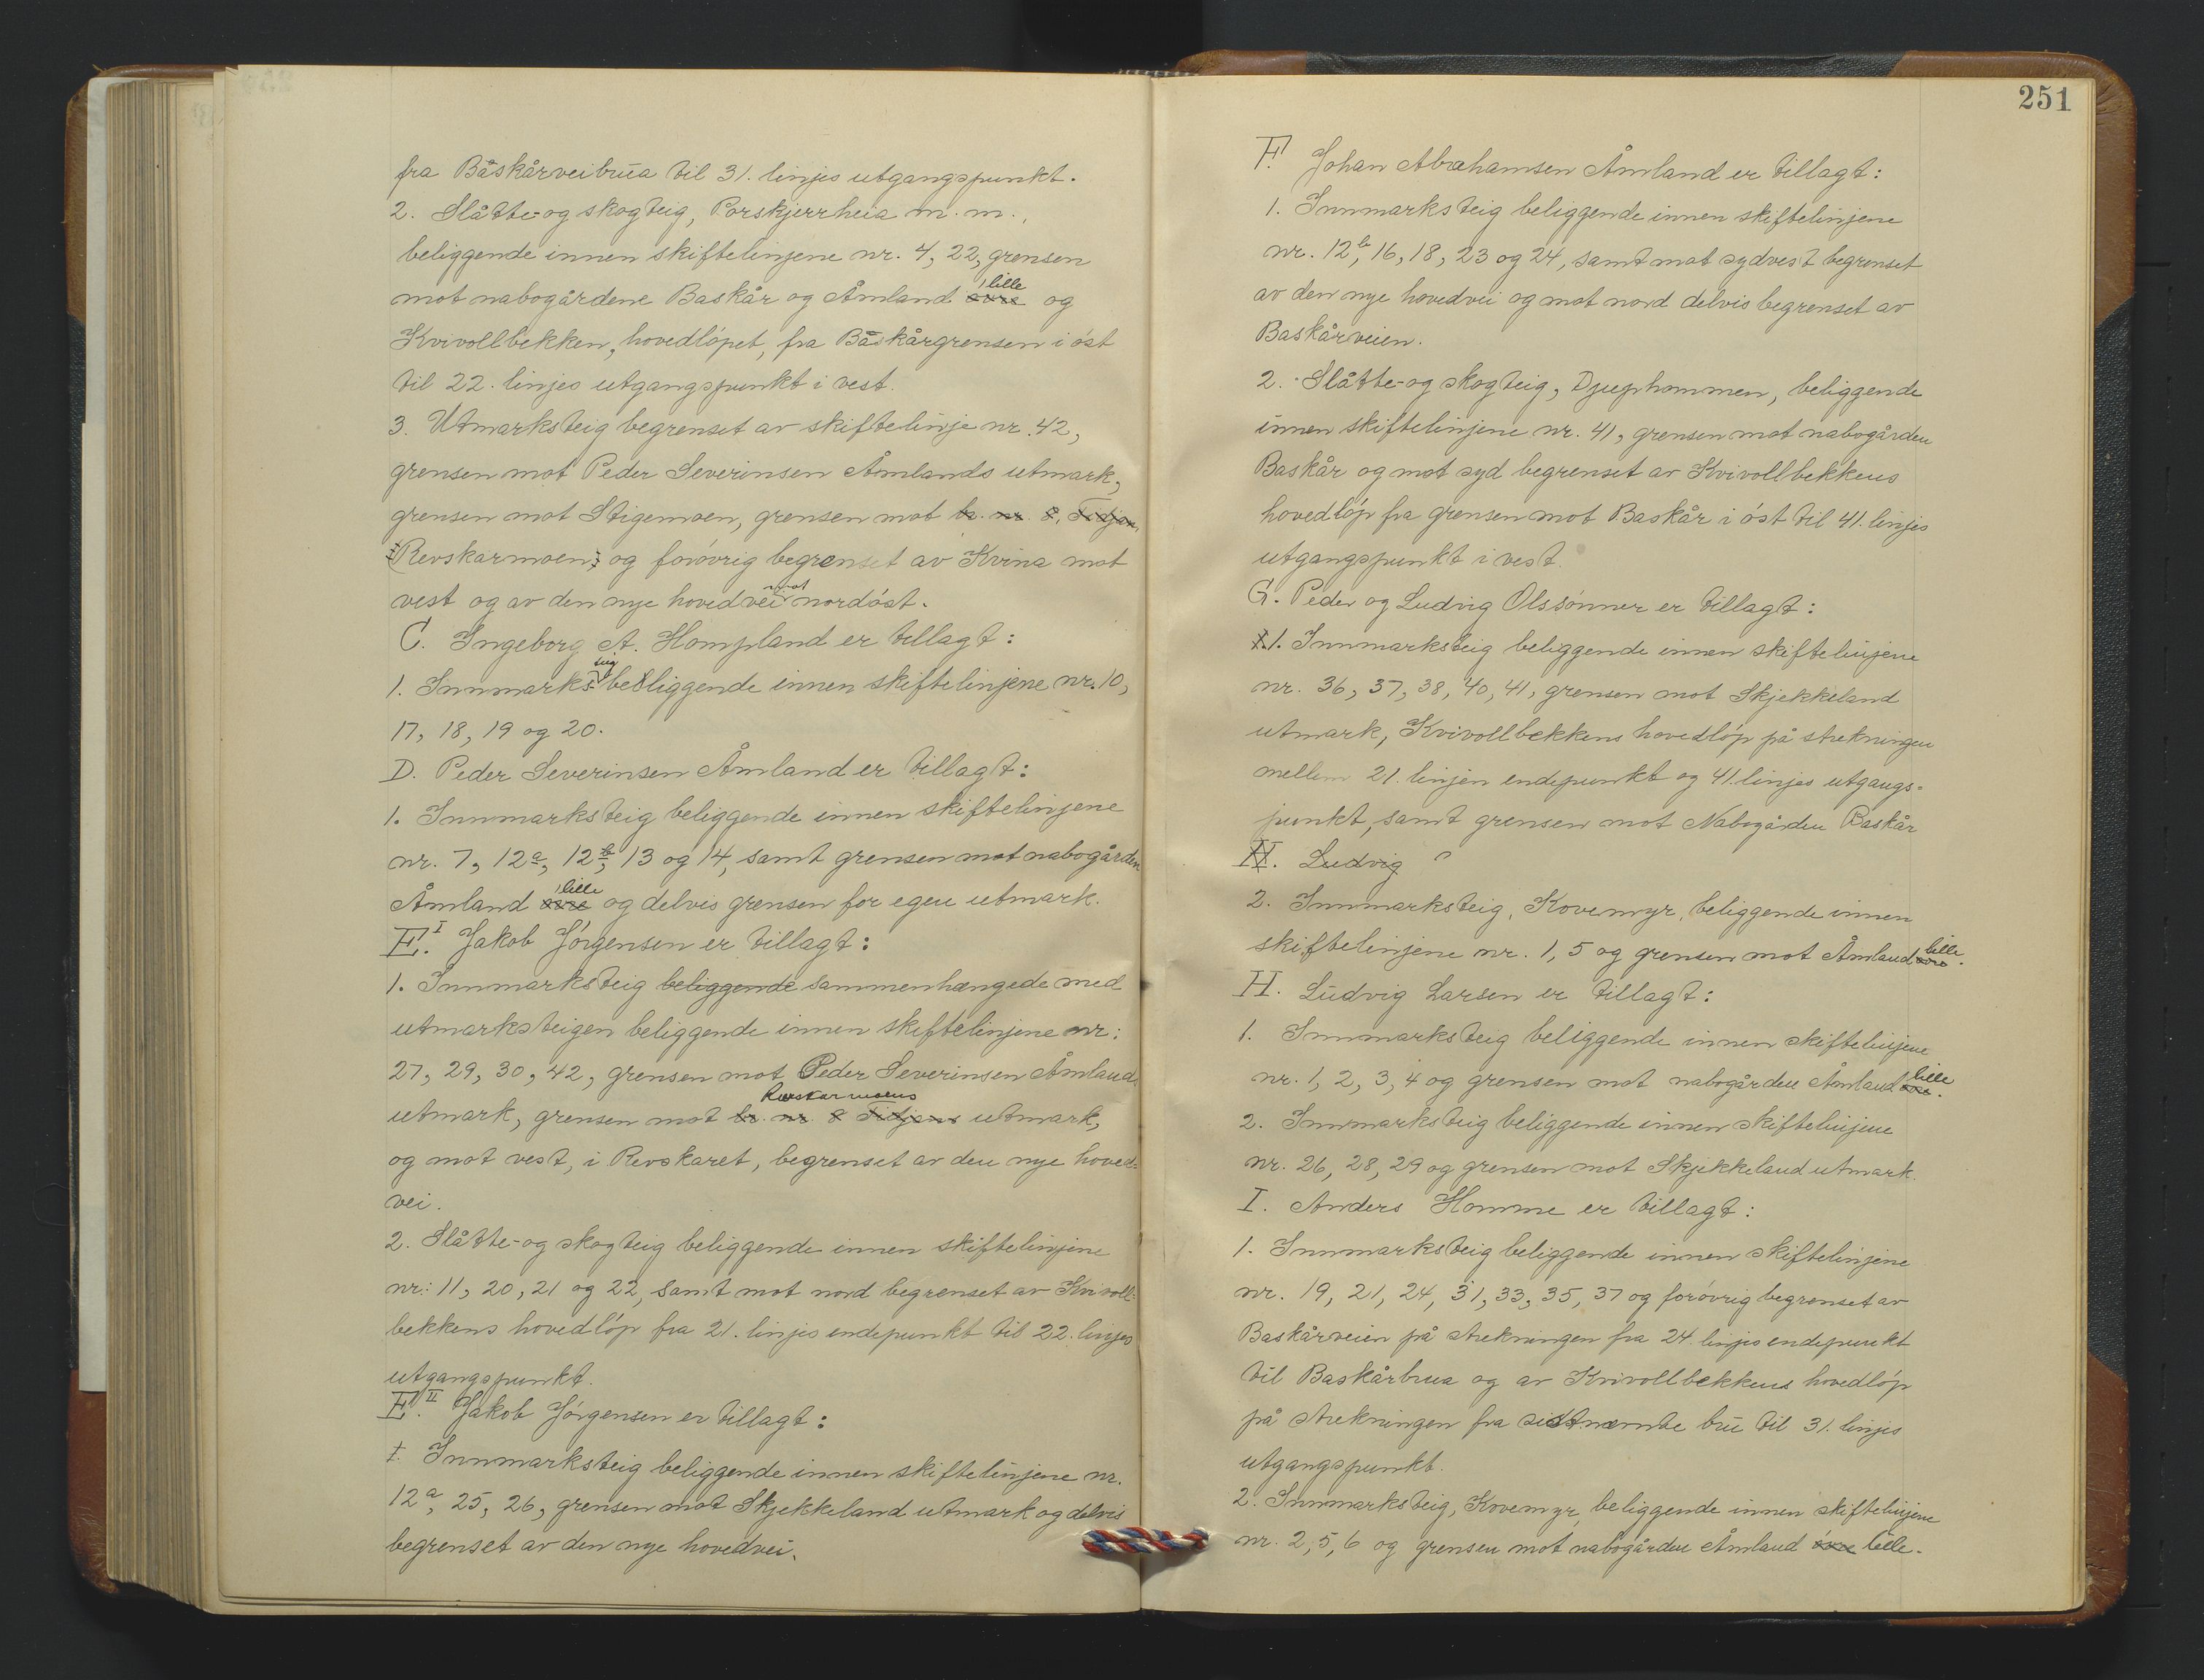 fra Båskårveibrua til 31. linjes utgangspunkt.
2. Slåtte- og skogteig, Porskjerrheia m. m.,
beliggende innen skiftelinjene nr. 4, 22, grensen
mot nabogårdene Baskår og Åmland øvre lille og
Kvivollbekken, hovedløpet, fra Båskårgrensen i øst
til 22. linjes utgangspunkt i vest.
3. Utmarksteig begrenset av skiftelinje nr. 42,
grensen mot Peder Severinsen Åmlands utmark,
grensen mot Stigemoen, grensen mot br. nr. 8, Titjan
Revskarmoen, og forøvrig begrenset av Kvina mot
vest og av den nye hovedvei mot nordøst.
C. Ingeborg A. Hompland er tillagt:
1. Innmarksteig beliggende innen skiftelinjene nr. 10,
17, 18, 19 og 20.
D. Peder Severinsen Åmland er tillagt:
1. Innmarksteig beliggende innen skiftelinjene
nr. 7, 12a, 12b, 13 og 14, samt grensen mot nabogården
Åmland øvre lille og delvis grensen for egen utmark.
E.I Jakob Jørgensen er tillagt:
1. Innmarksteig beliggende sammenhængede med
utmarksteigen beliggende innen skiftelinjene nr:
27, 29, 30, 42, grensen mot Peder Severinsen Åmlands
utmark, grensen mot br. nr. 8 Titjans Revskarmoens utmark,
og mot vest, i Revskaret, begrenset av den nye hoved-
vei.
2. Slåtte- og skogteig beliggende innen skiftelinjene
nr: 11, 20, 21 og 22, samt mot nord begrenset av Kvivoll-
bekkens hovedløp fra 21. linjes endepunkt til 22. linjes
utgangspunkt.
E.II Jakob Jørgensen er tillagt:
1. Innmarksteig beliggende innen skiftelinjene nr.
12a, 25, 26, grensen mot Skjekkeland utmark og delvis
begrenset av den nye hovedvei.
251
F. Johan Abrahamsen Åmland er tillagt:
1. Innmarksteig beliggende innen skiftelinjene
nr. 12b, 16, 18, 23 og 24, samt mot sydvest begrenset
av den nye hovedvei og mot nord delvis begrenset av
Baskårveien.
2. Slåtte- og skogteig, Djuphommen, beliggende
innen skiftelinjene nr. 41, grensen mot nabogården
Baskår og mot syd begrenset av Kvivollbekkens
hovedløp fra grensen mot Baskår i øst til 41. linjes
utgangspunkt i vest.
G. Peder og Ludvig Olssønner er tillagt:
1. Innmarksteig beliggende innen skiftelinjene
nr. 36, 37, 38, 40, 41, grensen mot Skjekkeland
utmark, Kvivollbekkens hovedløp på strekningen
mellem 21. linjen endepunkt og 41. linjes utgangs-
punkt, samt grensen mot Nabogården Baskår
H. Ludvig
2. Innmarksteig, Kovemyr, beliggende innen
skiftelinjene nr. 1, 5 og grensen mot Åmland øvre lille.
H. Ludvig Larsen er tillagt:
1. Innmarksteig beliggende innen skiftelinjene
nr. 1, 2, 3, 4 og grensen mot nabogården Åmland øvre lille.
2. Innmarksteig beliggende innen skiftelinjene
nr. 26, 28, 29 og grensen mot Skjekkeland utmark.
I. Anders Homme er tillagt:
1. Innmarksteig beliggende innen skiftelinjene
nr. 19, 21, 24, 31, 33, 35, 37 og forøvrig begrenset av
Baskårveien på strekningen fra 24 linjes endepunkt
til Baskårbrua og av Kvivollbekkens hovedløp
på strekningen fra sistnemnte bru til 31. linjes
utgangspunkt.
2. Innmarksteig, Kovemyr, beliggende innen skiftelinjene
nr. 2, 5, 6 og grensen mot nabogården Åmland øvre lille.